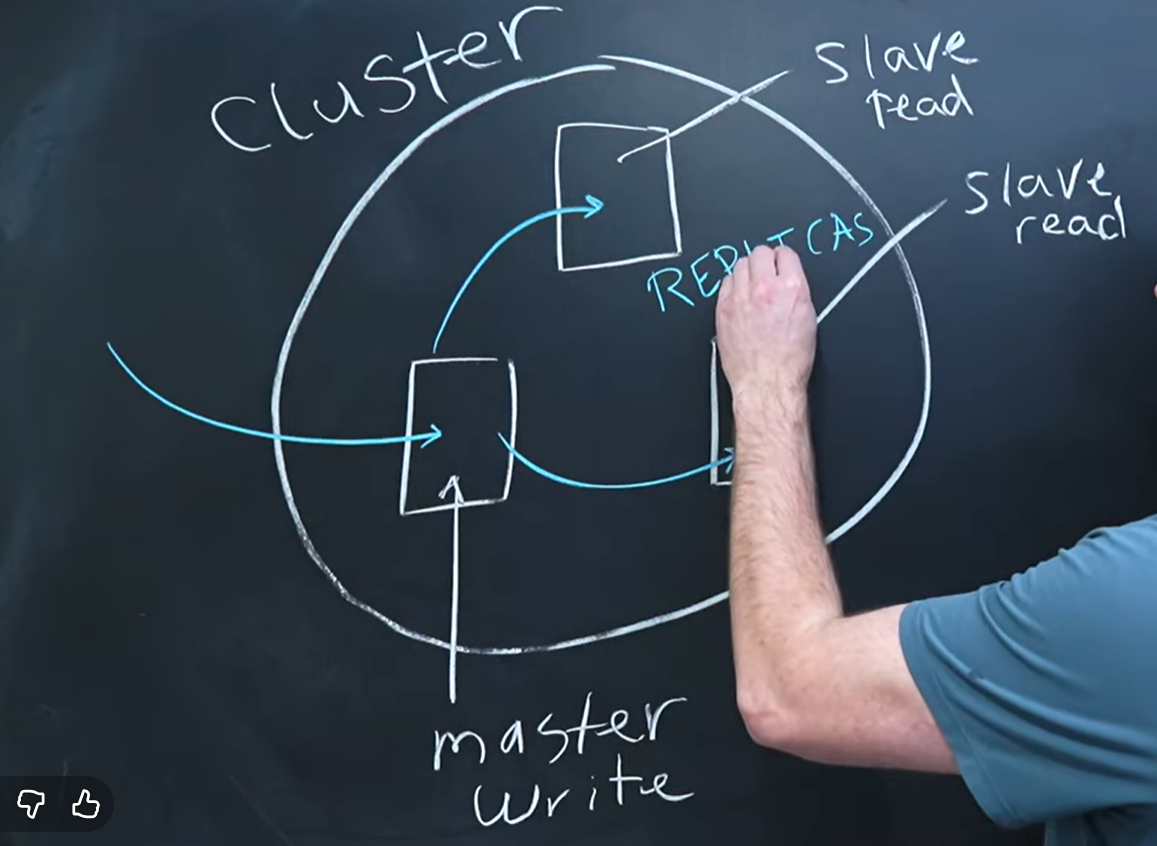 cluster
slave
read
slave
read
REPLICAS
master
write